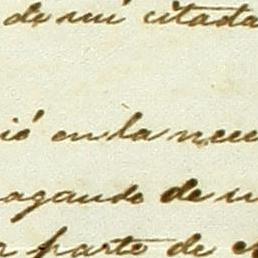 de mi citada
ió en la nece
agando de u
parte de e